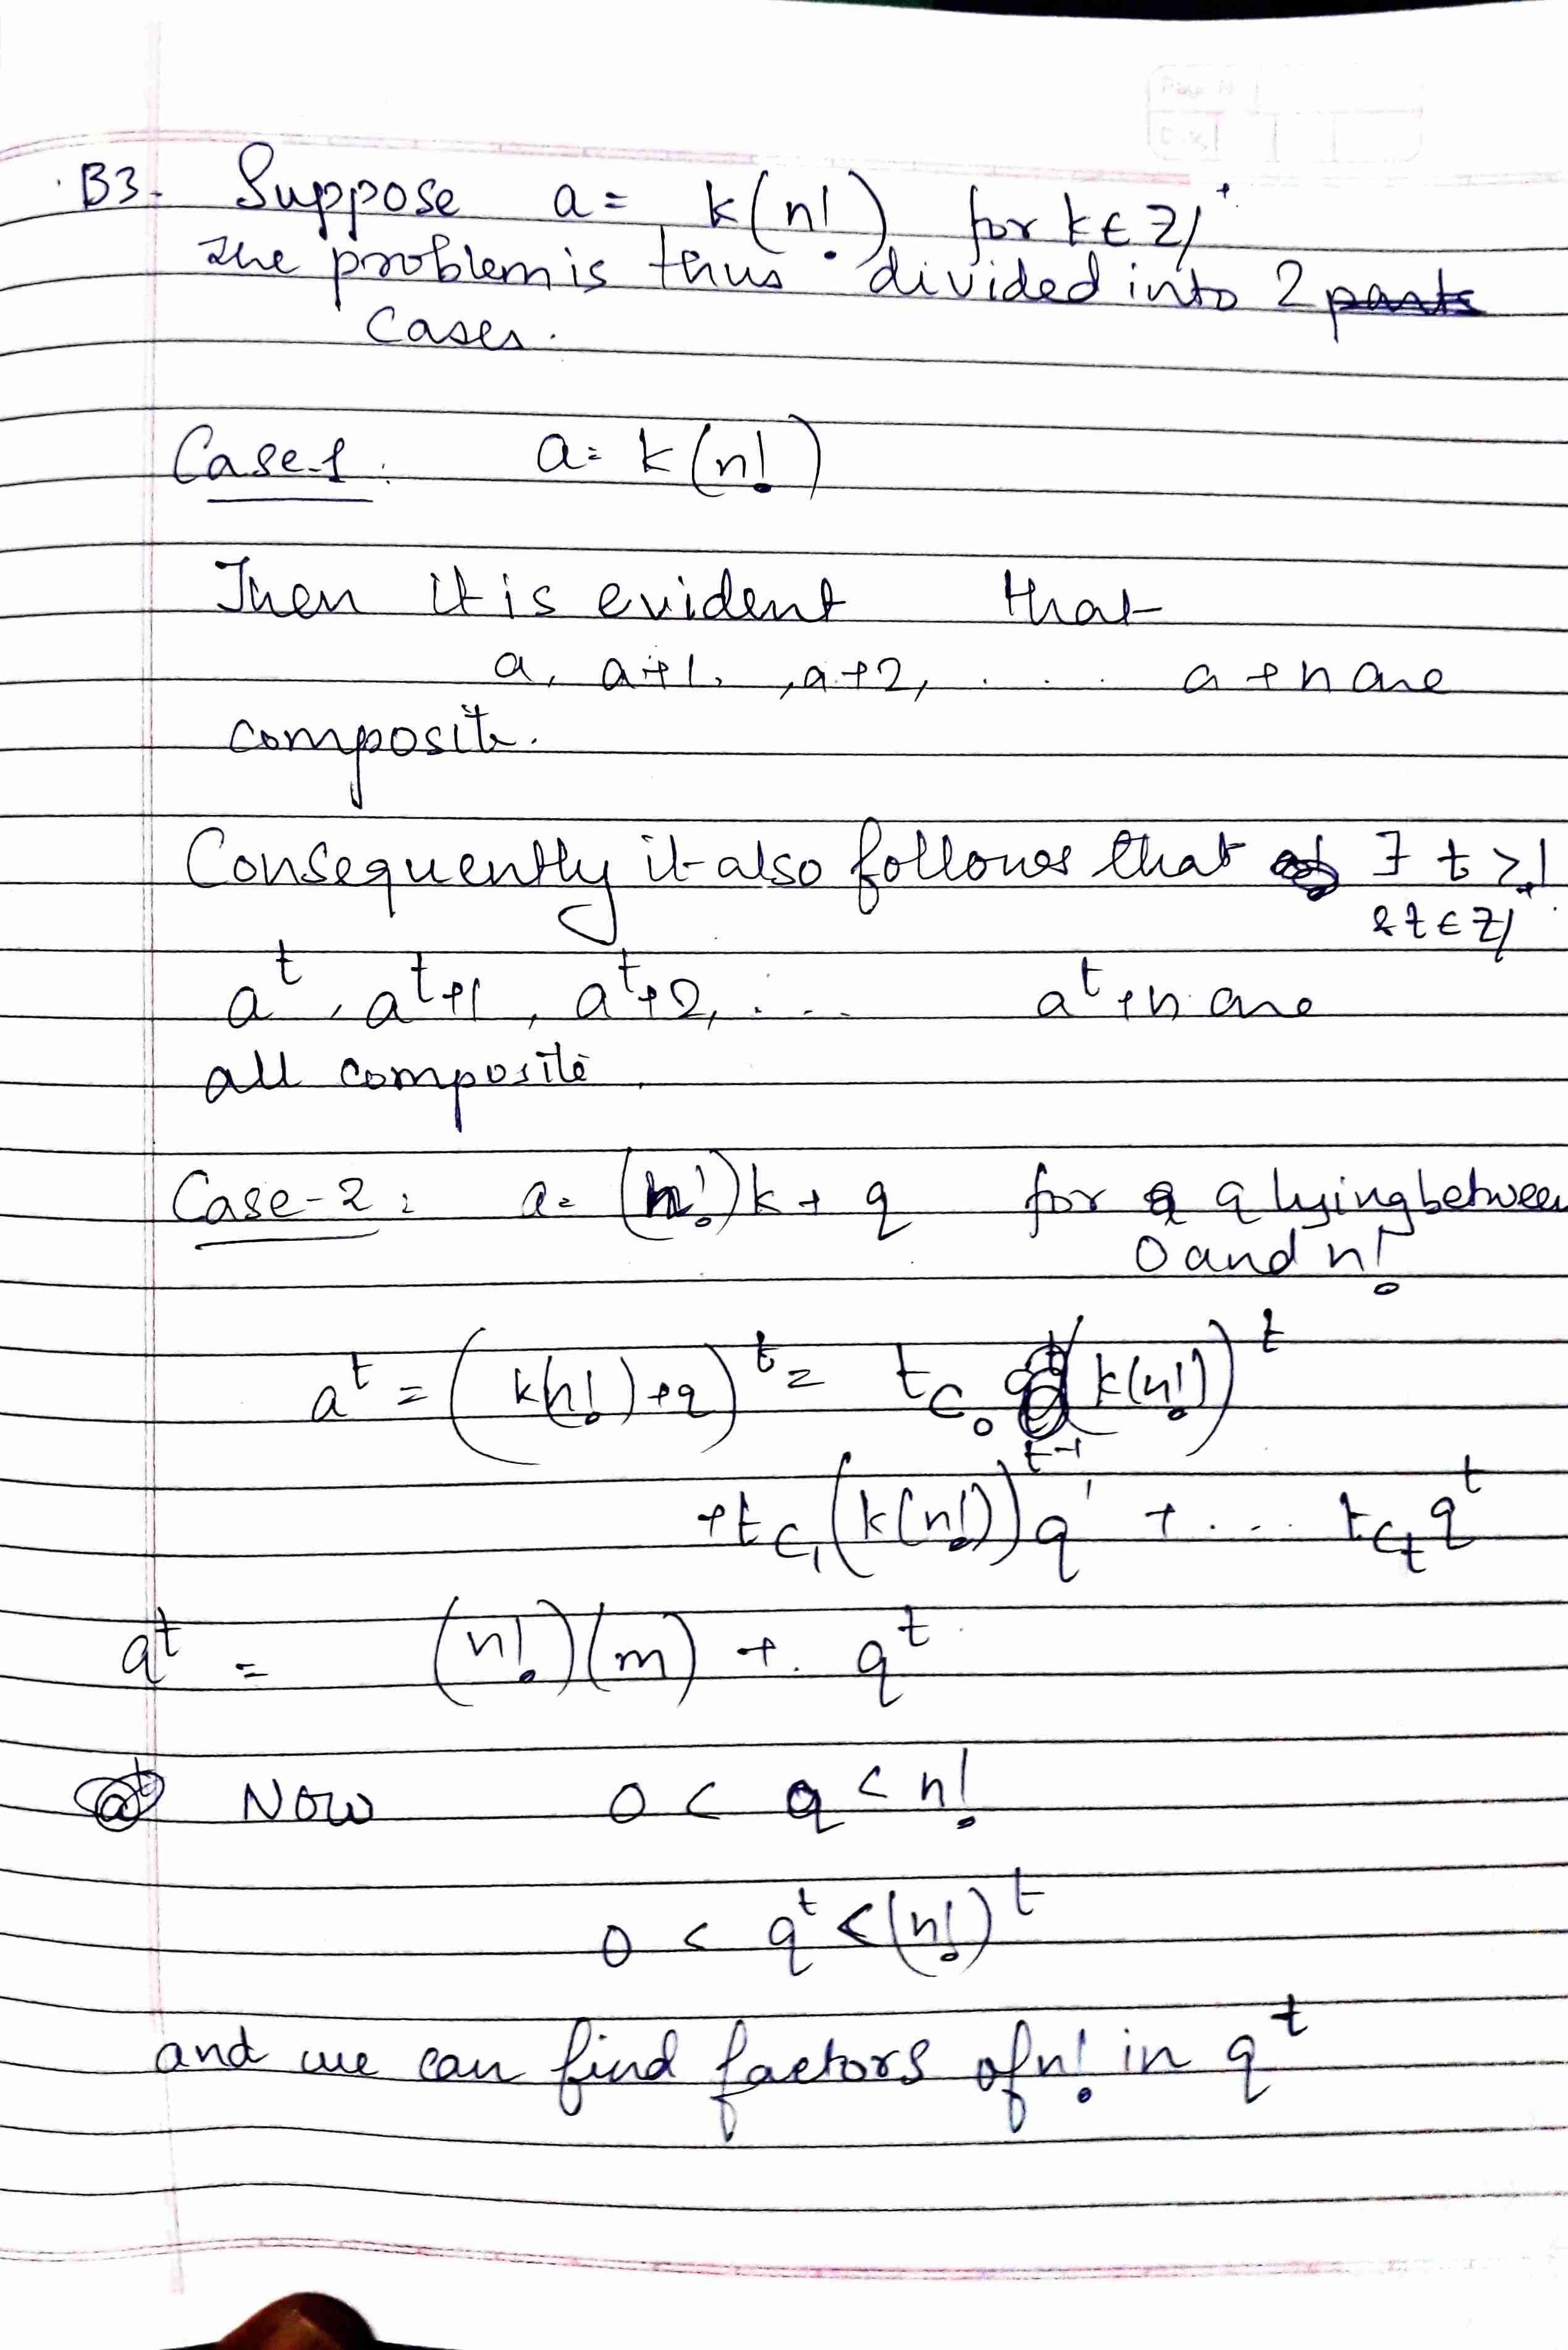 B3. Suppose a = k(n!) for k ∈ Z⁺.
The problem is thus divided into 2 parts
cases.
Case-1. a = k(n!)
Then it is evident that
a, a+1, a+2, .... a+n are
composite.
Consequently it also follows that ∃ t > 1
& t ∈ Z⁺
aᵗ, aᵗ+1, aᵗ+2, .... aᵗ+n are
all composite.
Case-2: a = (n!)k + q for q lying between
0 and n!
aᵗ = (k(n!)+q)ᵗ = tC₀ (k(n!))ᵗ
+ tC₁ (k(n!))ᵗ⁻¹ q¹ + .... tCₜ qᵗ
aᵗ = (n!)(m) + qᵗ
Now 0 < q < n!
0 < qᵗ < (n!)ᵗ
and we can find factors of n! in qᵗ